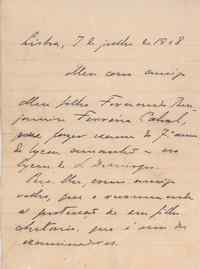 Lisboa, 7 de julho de 1918
Meu caro amigo
Meu filho Fernando Ben-
jamim Ferreira Cabral,
fazer exame de 7º anno
do lyceu amanhã no
lyceu de
meu amigo
velho, que o recommende
á protecção de seu filho
que é um dos
examinadores.